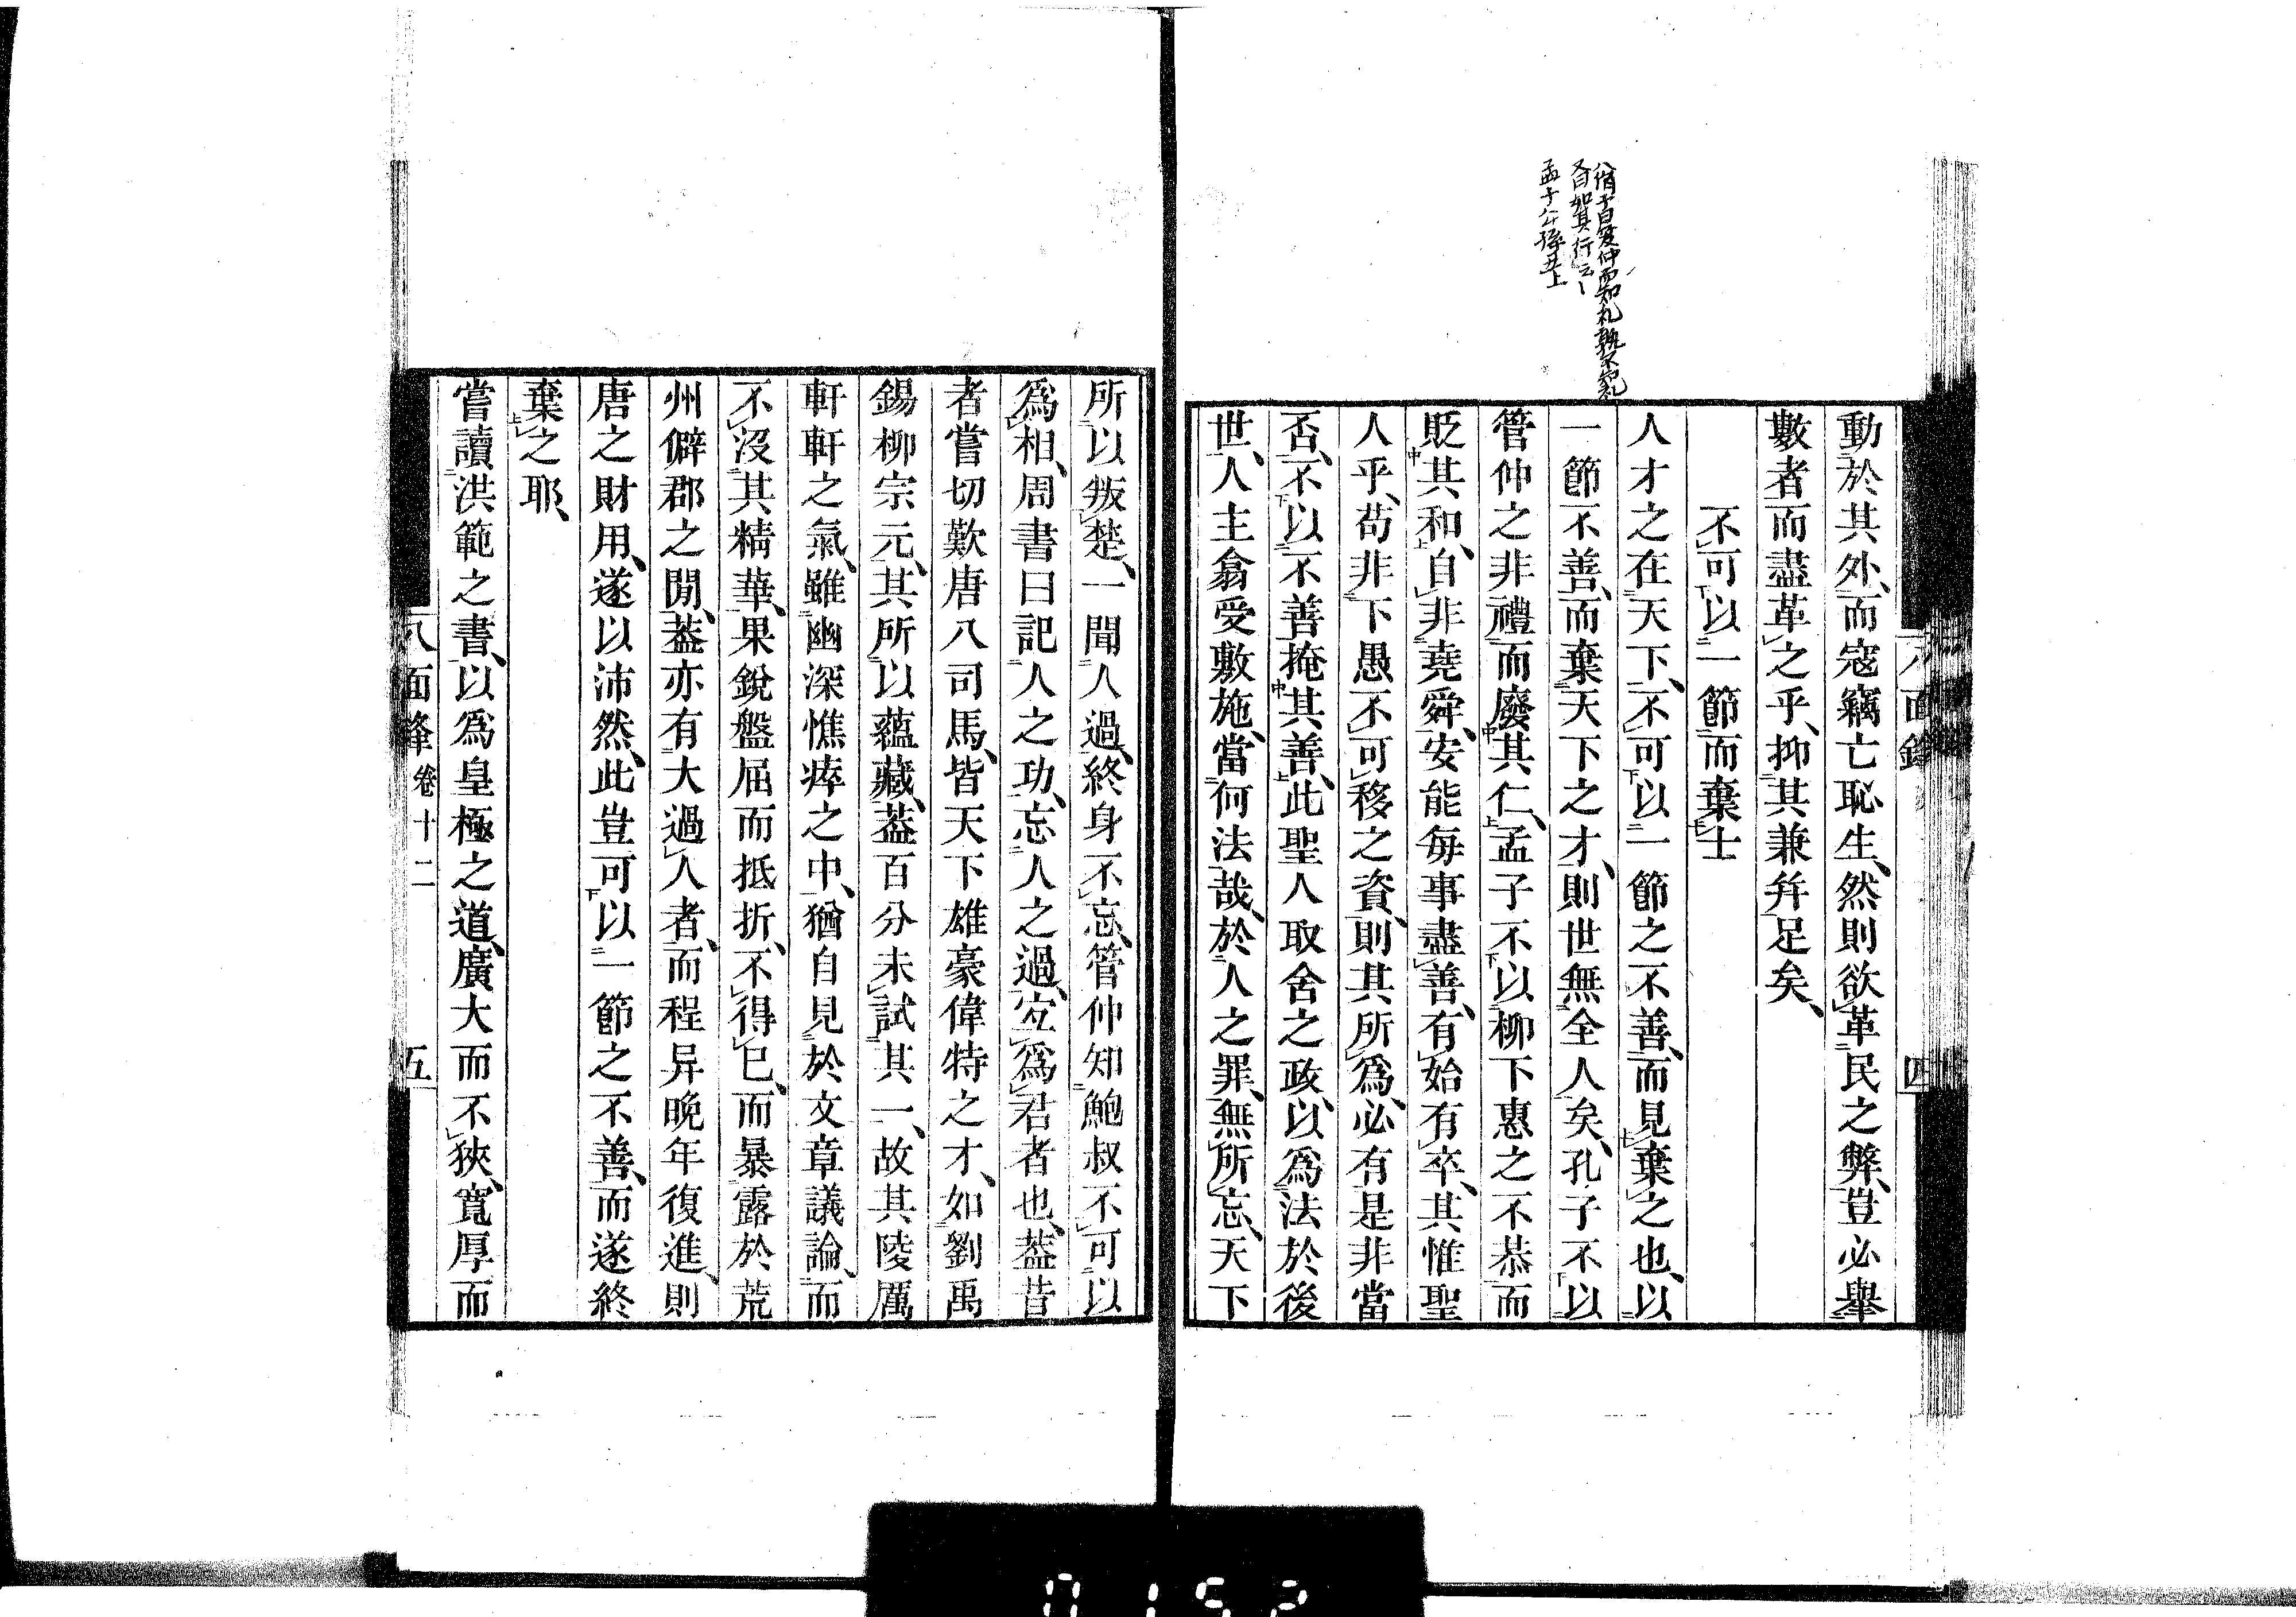 八佾子曰管仲而知礼孰不知礼
又曰如其仁云〻
孟子公孫丑上
動於其外、而寇竊亡恥生、然則欲革民之弊、豈必舉
數者而盡革之乎、抑其兼并足矣、
不可以一節而棄士
人才之在天下、不可以一節之不善、而見棄之也、以
一節不善、而棄天下之才、則世無全人矣、孔子不以
管仲之非禮而廢其仁、孟子不以柳下惠之不恭而
貶其和、自非堯舜、安能每事盡善、有始有卒、其惟聖
人乎、苟非下愚不可移之資、則其所爲、必有是非當
否、不以不善掩其善、此聖人取舍之政、以爲法於後
世、人主翕受敷施、當何法哉、於人之罪、無所忘、天下
八面鋒
四
所以叛楚、一聞人過、終身不忘、管仲知鮑叔不可以
爲相、周書曰記人之功、忘人之過、宐爲君者也、蓋昔
者嘗切歎唐八司馬、皆天下雄豪偉特之才、如劉禹
錫柳宗元、其所以蘊藏、蓋百分未試其一、故其陵厲
軒軒之氣、雖幽深憔瘁之中、猶自見於文章議論、而
不沒其精華、果銳盤屈而抵折、不得已、而暴露於荒
州僻郡之閒、蓋亦有大過人者、而程异晚年復進、則
唐之財用、遂以沛然、此豈可以一節之不善、而遂終
棄之耶、
嘗讀洪範之書、以爲皇極之道、廣大而不狹、寬厚而
八面鋒 卷十二
五
0152